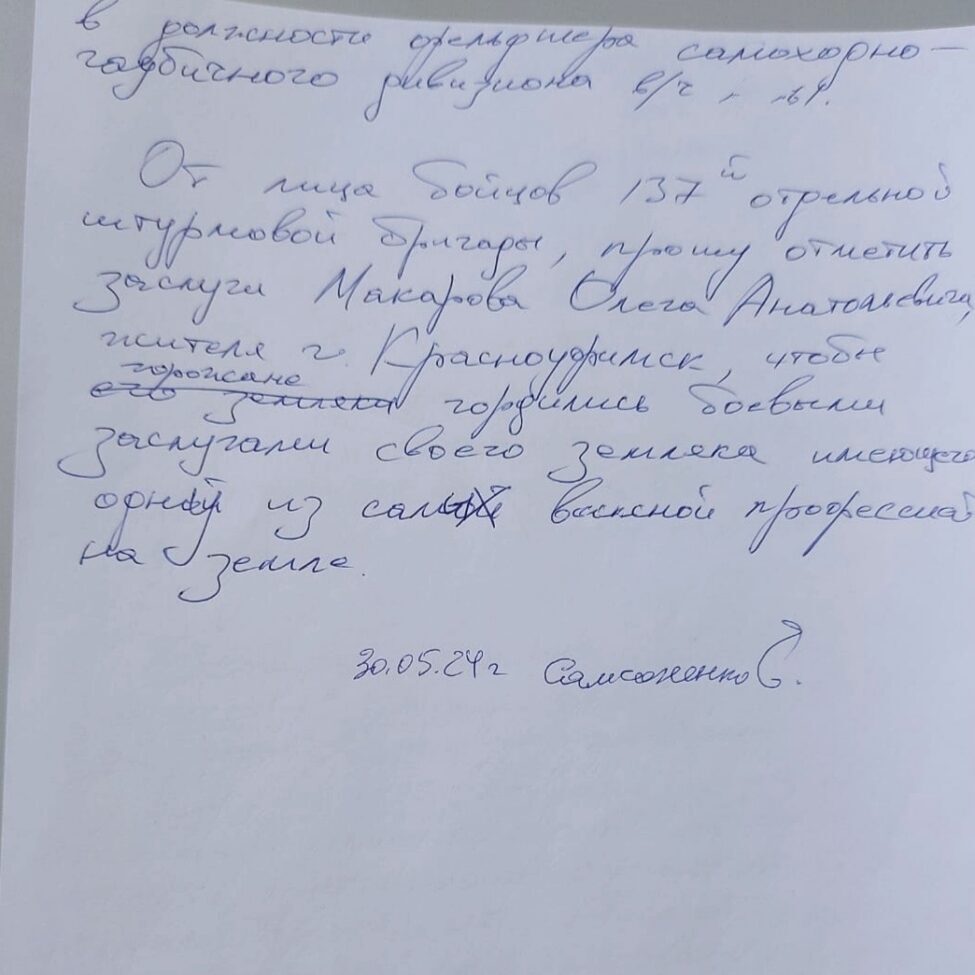 в должности фельдшера самоходно-
гаубичного дивизиона в/ч
От лица бойцов 137й отдельной
штурмовой бригады, прошу отметить
заслуги Макарова Олега Анатольевича,
жителя г. Красноуфимск, чтобы
горожане
его земляки гордились боевыми
заслугами своего земляка имеющего
одной из самой важной профессией
на земле.
30.05.24г Самсоненко С.